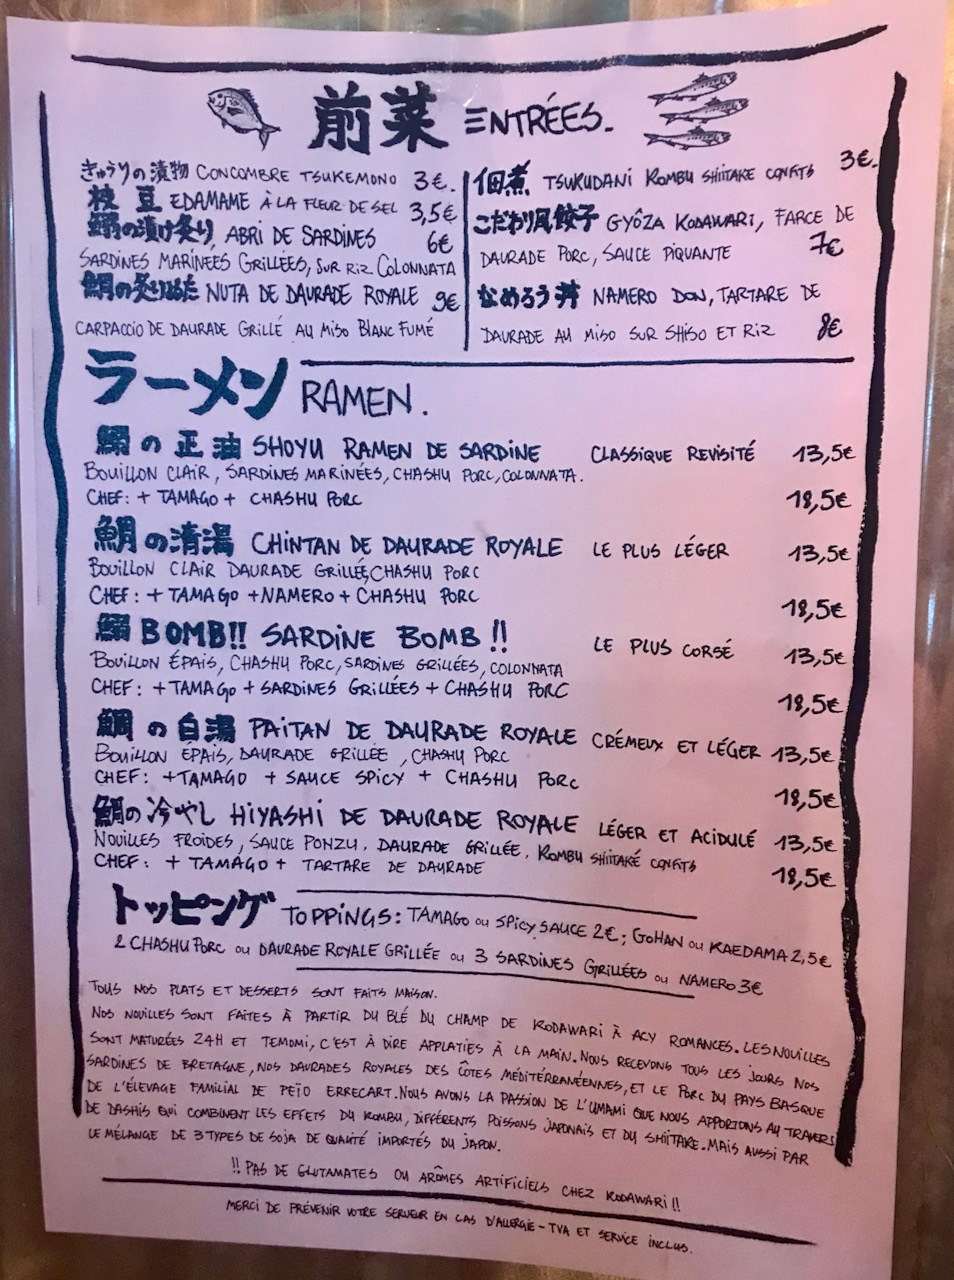 前菜 ENTRÉES.
きゅうりの漬物 CONCOMBRE TSUKEMONO 3€.
枝豆 EDAMAME À LA FLEUR DE SEL 3,5€
鰯の漬け炙り ABRI DE SARDINES 6€
SARDINES MARINÉES GRILLÉES, SUR RIZ COLONNATA
鯛の炙りぬた NUTA DE DAURADE ROYALE 9€
CARPACCIO DE DAURADE GRILLÉ AU MISO BLANC FUMÉ
佃煮 TSUKUDANI KOMBU SHIITAKE CONFITS 3€.
こだわり風餃子 GYÔZA KODAWARI, FARCE DE
DAURADE PORC, SAUCE PIQUANTE 7€
なめろう丼 NAMERO DON, TARTARE DE
DAURADE AU MISO SUR SHISO ET RIZ 8€
ラーメン RAMEN.
鰯の正油 SHOYU RAMEN DE SARDINE CLASSIQUE REVISITÉ 13,5€
BOUILLON CLAIR, SARDINES MARINÉES, CHASHU PORC, COLONNATA.
CHEF: + TAMAGO + CHASHU PORC 18,5€
鯛の清湯 CHINTAN DE DAURADE ROYALE LE PLUS LÉGER 13,5€
BOUILLON CLAIR DAURADE GRILLÉE, CHASHU PORC
CHEF: + TAMAGO + NAMERO + CHASHU PORC 18,5€
鰯 BOMB!! SARDINE BOMB!! LE PLUS CORSÉ 13,5€
BOUILLON ÉPAIS, CHASHU PORC, SARDINES GRILLÉES, COLONNATA
CHEF: + TAMAGO + SARDINES GRILLÉES + CHASHU PORC 18,5€
鯛の白湯 PAITAN DE DAURADE ROYALE CRÉMEUX ET LÉGER 13,5€
BOUILLON ÉPAIS, DAURADE GRILLÉE, CHASHU PORC
CHEF: + TAMAGO + SAUCE SPICY + CHASHU PORC 18,5€
鯛の冷やし HIYASHI DE DAURADE ROYALE LÉGER ET ACIDULÉ 13,5€
NOUILLES FROIDES, SAUCE PONZU, DAURADE GRILLÉE, KOMBU SHIITAKÉ CONFITS
CHEF: + TAMAGO + TARTARE DE DAURADE 18,5€
トッピング TOPPINGS: TAMAGO OU SPICY SAUCE 2€; GOHAN OU KAEDAMA 2,5€
2 CHASHU PORC OU DAURADE ROYALE GRILLÉE OU 3 SARDINES GRILLÉES OU NAMERO 3€
TOUS NOS PLATS ET DESSERTS SONT FAITS MAISON.
NOS NOUILLES SONT FAITES À PARTIR DU BLÉ DU CHAMP DE KODAWARI À ACY ROMANCES. LES NOUILLES
SONT MATURÉES 24H ET TEMOMI, C'EST À DIRE APPLATIES À LA MAIN. NOUS RECEVONS TOUS LES JOURS NOS
SARDINES DE BRETAGNE, NOS DAURADES ROYALES DES CÔTES MÉDITÉRRANÉENNES, ET LE PORC DU PAYS BASQUE
DE L'ÉLEVAGE FAMILIAL DE PEÏO ERRECART. NOUS AVONS LA PASSION DE L'UMAMI QUE NOUS APPORTONS AU TRAVERS
DE DASHIS QUI COMBINENT LES EFFETS DU KOMBU, DIFFÉRENTS POISSONS JAPONAIS ET DU SHIITAKE. MAIS AUSSI PAR
LE MÉLANGE DE 3 TYPES DE SOJA DE QUALITÉ IMPORTÉS DU JAPON.
!! PAS DE GLUTAMATES OU ARÔMES ARTIFICIELS CHEZ KODAWARI !!
MERCI DE PRÉVENIR VOTRE SERVEUR EN CAS D'ALLERGIE - TVA ET SERVICE INCLUS.